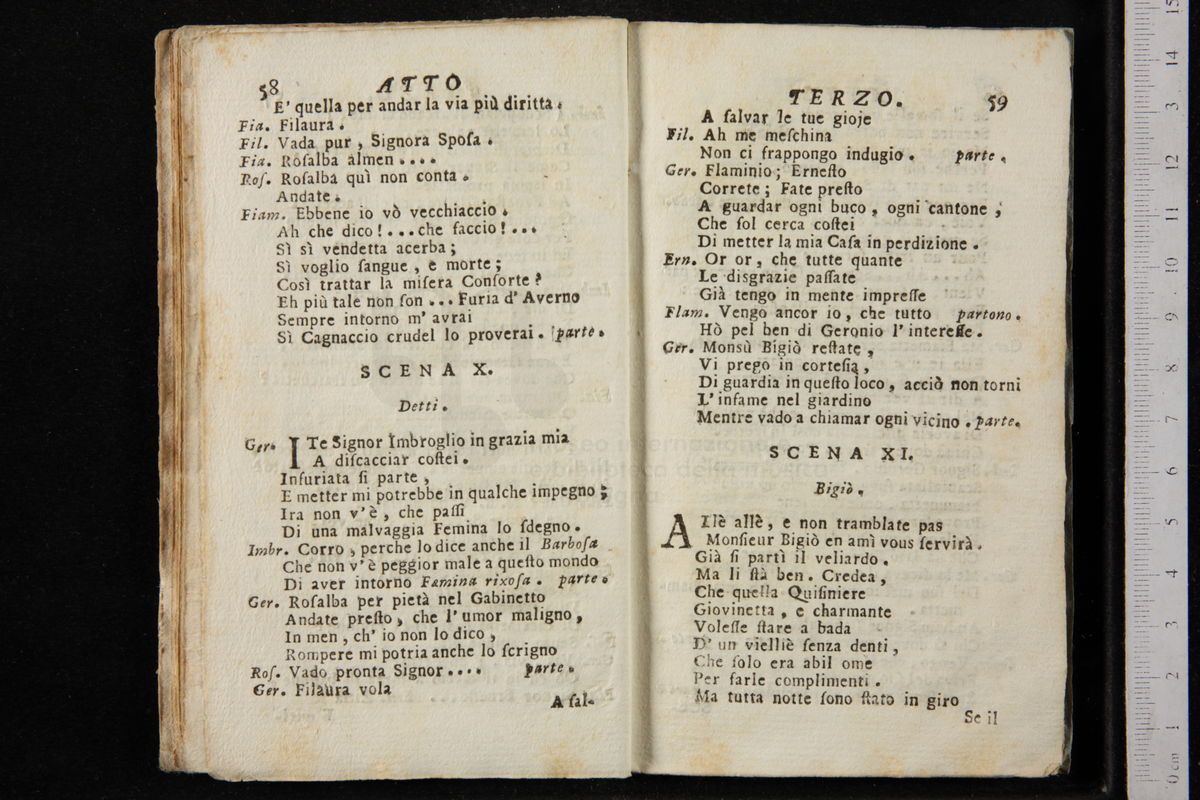 58 ATTO
E' quella per andar la via più diritta.
Fia. Filaura.
Fil. Vada pur, Signora Spoſa.
Fia. Roſalba almen....
Roſ. Roſalba quì non conta.
Andate.
Fiam. Ebbene io vò vecchiaccio.
Ah che dico!...che faccio!...
Sì sì vendetta acerba;
Sì voglio ſangue, e morte;
Così trattar la miſera Conſorte?
Eh più tale non ſon... Furia d'Averno
Sempre intorno m'avrai
Sì Cagnaccio crudel lo proverai. parte.
SCENA X.
Detti.
Ger. ITe Signor Imbroglio in grazia mia
A diſcacciar coſtei.
Infuriata ſi parte,
E metter mi potrebbe in qualche impegno;
Ira non v'è, che paſſi
Di una malvaggia Femina lo ſdegno.
Imbr. Corro, perche lo dice anche il Barboſa
Che non v'è peggior male a queſto mondo
Di aver intorno Fæmina rixoſa. parte.
Ger. Roſalba per pietà nel Gabinetto
Andate preſto, che l'umor maligno,
In men, ch'io non lo dico,
Rompere mi potria anche lo ſcrigno
Roſ. Vado pronta Signor.... parte.
Ger. Filaura vola
A ſal-
TERZO. 59
A ſalvar le tue gioje
Fil. Ah me meſchina
Non ci frappongo indugio. parte.
Ger. Flaminio; Erneſto
Correte; Fate preſto
A guardar ogni buco, ogni cantone;
Che ſol cerca coſtei
Di metter la mia Caſa in perdizione.
Ern. Or or, che tutte quante
Le disgrazie paſſate
Già tengo in mente impreſſe
Flam. Vengo ancor io, che tutto partono.
Hò pel ben di Geronio l'intereſſe.
Ger. Monsù Bigiò reſtate,
Vi prego in corteſia,
Di guardia in queſto loco, acciò non torni
L'infame nel giardino
Mentre vado a chiamar ogni vicino. parte.
SCENA XI.
Bigiò.
Allè allè, e non tramblate pas
Monſieur Bigiò en amì vous ſervirà.
Già ſi partì il veliardo.
Ma li ſtà ben. Credea,
Che quella Quiſiniere
Giovinetta, e charmante
Voleſſe ſtare a bada
D'un vielliè ſenza denti,
Che ſolo era abil ome
Per farle complimenti.
Ma tutta notte ſono ſtato in giro
Se il